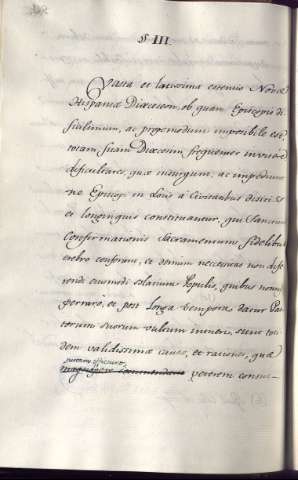 § III.
Vasta et latissima extensio Novæ
Hispaniæ Diœcesum, ob quam Episcopis dif
ficilimum, ac propemodum impossibile est
totam suam Diœcesim frequenter invisere
dificultates, quæ insurgunt, ac impediunt
ne Episcopi in Locis a Civitatibus disstitis
et longinquis constituantur, qui Sanctum
Confirmationis Sacramentum fidelibus
crebro conferant, et demum necessitas non dife
rendi eiusmodi solatium Populis, quibus nonni
per raro, et post longa tempora datur Pas
torum suorum vultum intueri, sunt toti
dem validissimæ causæ, et rationes, quæ
petere consue